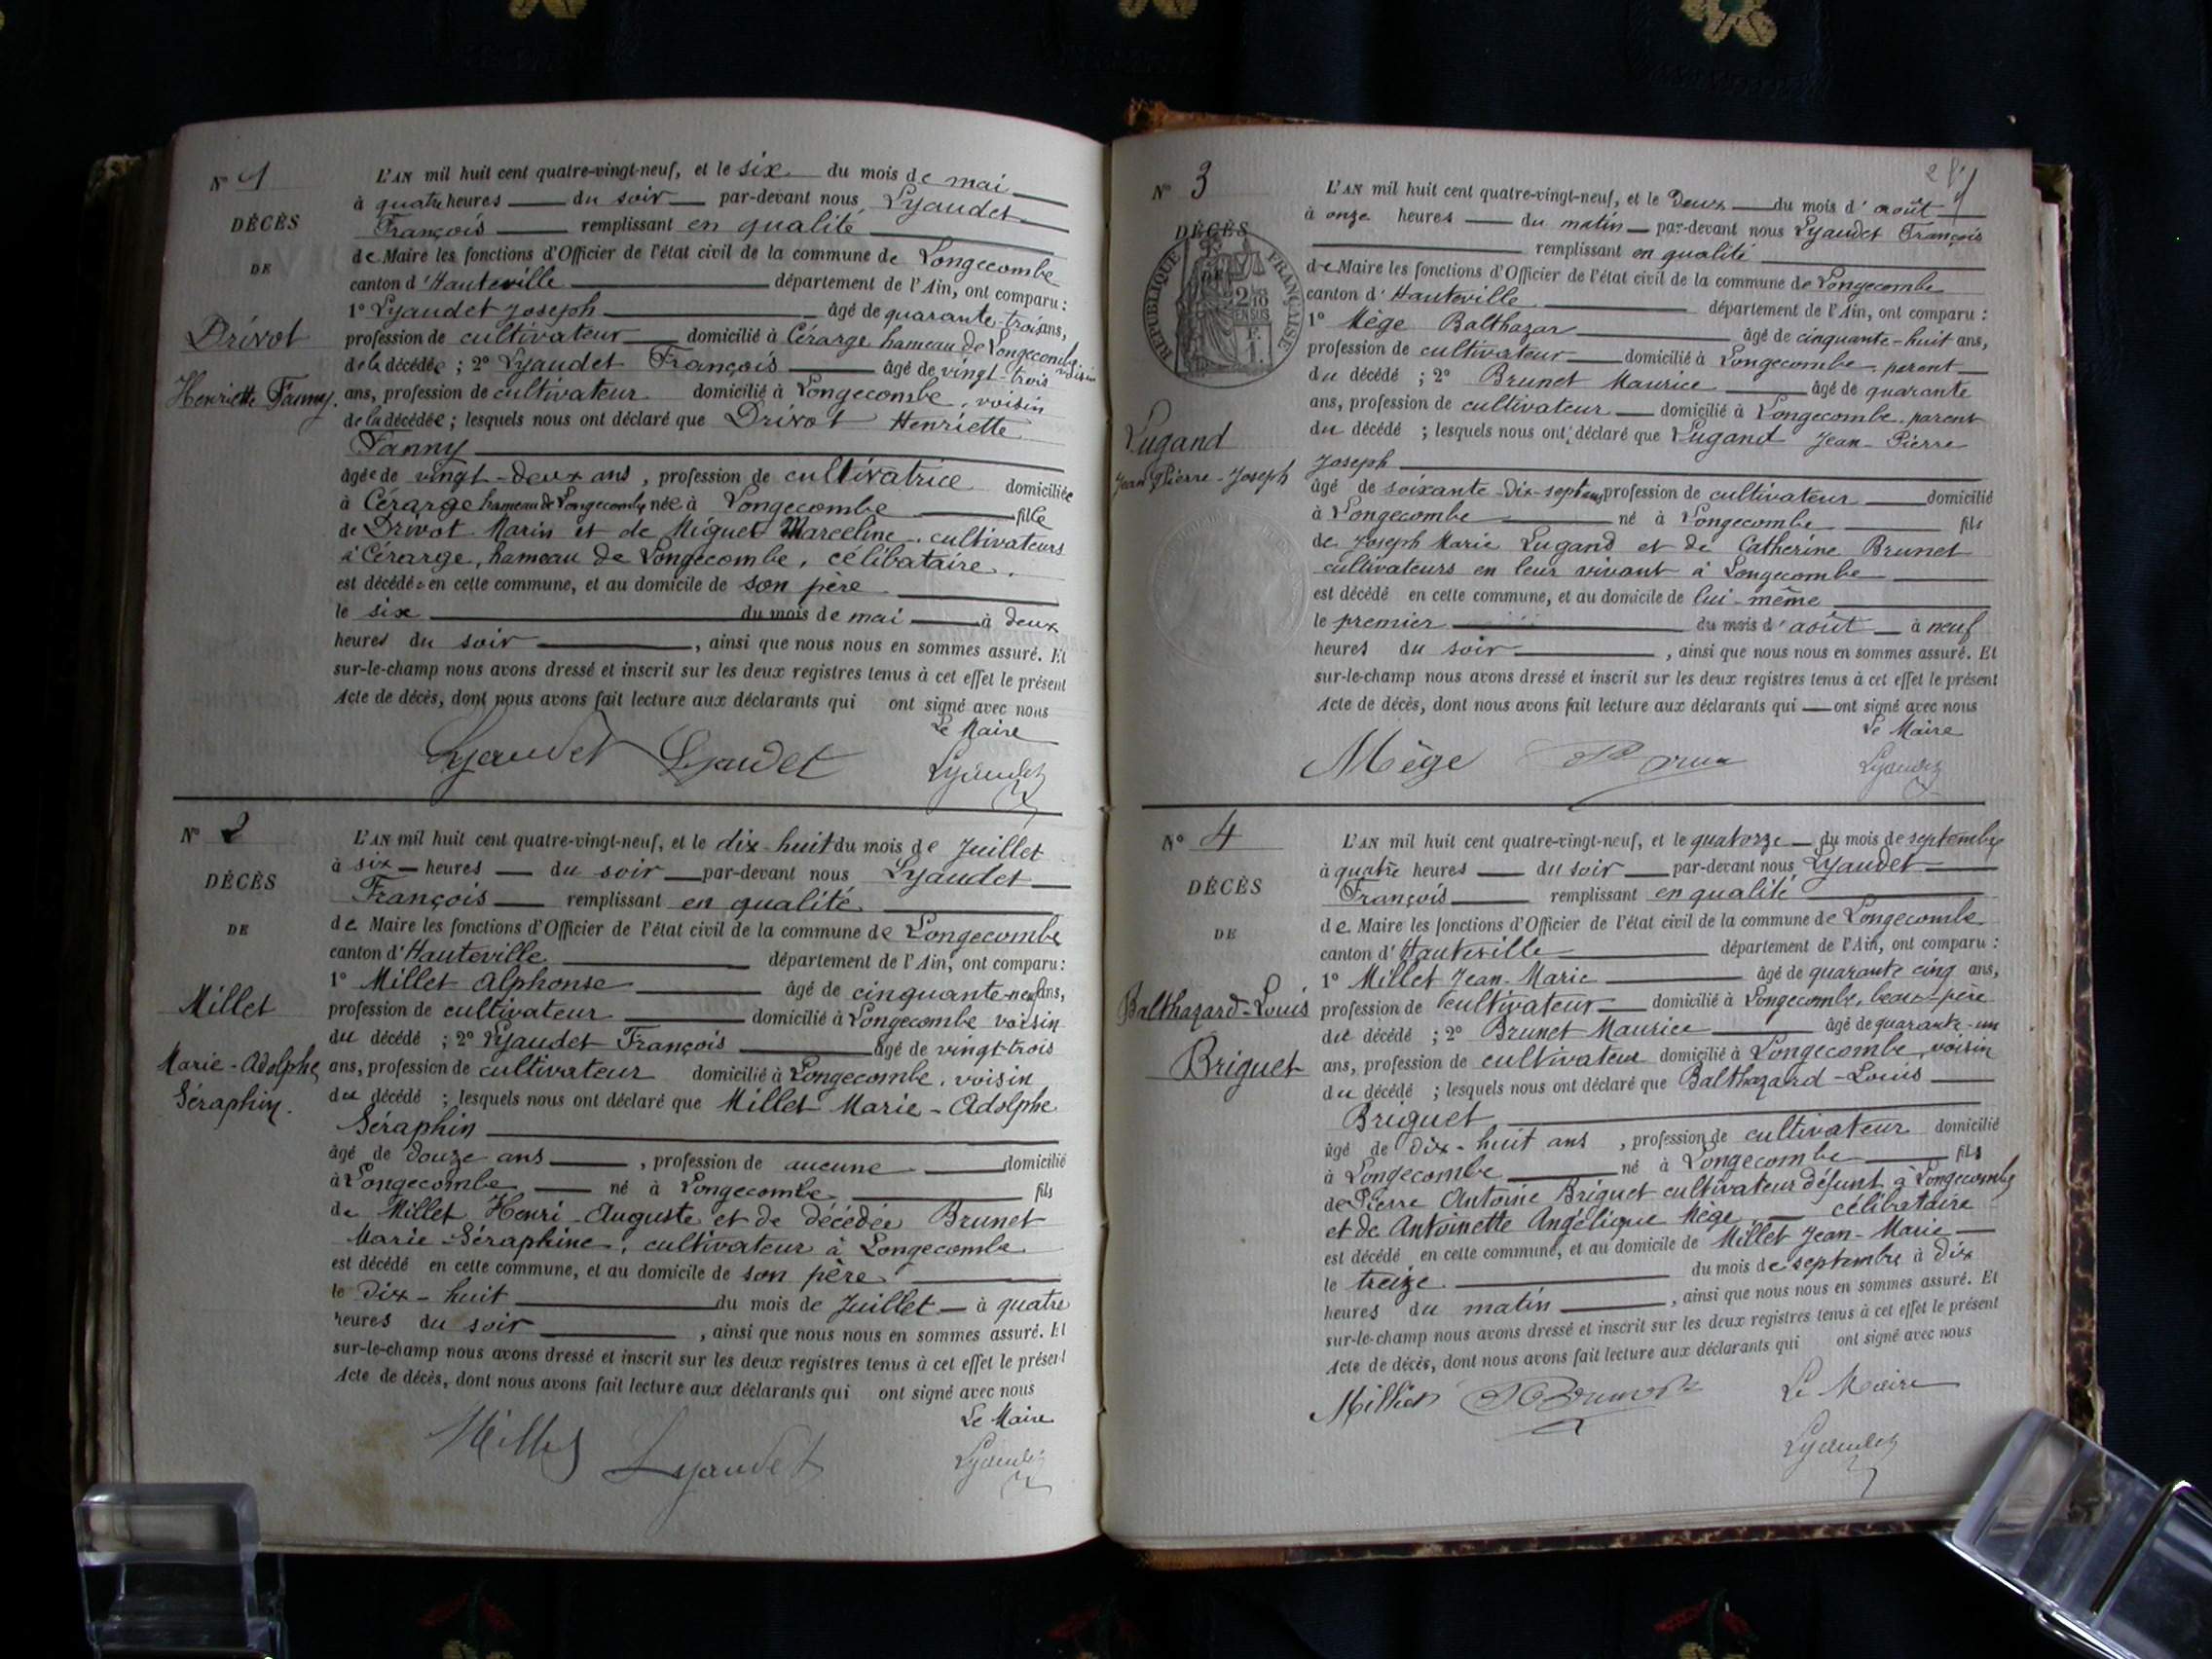 N° 1
DÉCÈS
DE
Drivot
Henriette Fanny.
L'AN mil huit cent quatre-vingt-neuf, et le six du mois de mai
à quatre heures du soir par-devant nous Lyaudet
François remplissant en qualité
de Maire les fonctions d'Officier de l'état civil de la commune de Longecombe
canton d'Hauteville département de l'Ain, ont comparu :
1° Lyaudet Joseph âgé de quarante-trois ans,
profession de cultivateur domicilié à Cérarge hameau de Longecombe, voisin
de la décédée ; 2° Lyaudet François âgé de vingt-trois
ans, profession de cultivateur domicilié à Longecombe, voisin
de la décédée ; lesquels nous ont déclaré que Drivot Henriette
Fanny
âgée de vingt-deux ans, profession de cultivatrice domiciliée
à Cérarge hameau de Longecombe née à Longecombe fille
de Drivot Marin et de Miguet Marceline, cultivateurs
à Cérarge, hameau de Longecombe, célibataire,
est décédée en cette commune, et au domicile de son père
le six du mois de mai à deux
heures du soir, ainsi que nous nous en sommes assuré. Et
sur-le-champ nous avons dressé et inscrit sur les deux registres tenus à cet effet le présent
Acte de décès, dont nous avons fait lecture aux déclarants qui ont signé avec nous
Le Maire
Lyaudet Lyaudet Lyaudet
N° 2
DÉCÈS
DE
Millet
Marie-Adolphe
Séraphin.
L'AN mil huit cent quatre-vingt-neuf, et le dix-huit du mois de Juillet
à six heures du soir par-devant nous Lyaudet
François remplissant en qualité
de Maire les fonctions d'Officier de l'état civil de la commune de Longecombe
canton d'Hauteville département de l'Ain, ont comparu :
1° Millet Alphonse âgé de cinquante-neuf ans,
profession de cultivateur domicilié à Longecombe voisin
du décédé ; 2° Lyaudet François âgé de vingt-trois
ans, profession de cultivateur domicilié à Longecombe, voisin
du décédé ; lesquels nous ont déclaré que Millet Marie-Adolphe
Séraphin
âgé de douze ans, profession de aucune domicilié
à Longecombe né à Longecombe fils
de Millet Henri-Auguste et de décédée Brunet
Marie Séraphine, cultivateur à Longecombe
est décédé en cette commune, et au domicile de son père
le dix-huit du mois de Juillet à quatre
heures du soir, ainsi que nous nous en sommes assuré. Et
sur-le-champ nous avons dressé et inscrit sur les deux registres tenus à cet effet le présent
Acte de décès, dont nous avons fait lecture aux déclarants qui ont signé avec nous
Le Maire
Millet Lyaudet Lyaudet
N° 3
DÉCÈS
RÉPUBLIQUE FRANÇAISE
Lugand
Jean Pierre-Joseph
L'AN mil huit cent quatre-vingt-neuf, et le deux du mois d'août
à onze heures du matin par-devant nous Lyaudet François
remplissant en qualité
de Maire les fonctions d'Officier de l'état civil de la commune de Longecombe
canton d'Hauteville département de l'Ain, ont comparu :
1° Mège Balthazar âgé de cinquante-huit ans,
profession de cultivateur domicilié à Longecombe, parent
du décédé ; 2° Brunet Maurice âgé de quarante
ans, profession de cultivateur domicilié à Longecombe, parent
du décédé ; lesquels nous ont déclaré que Lugand Jean-Pierre
Joseph
âgé de soixante-dix-sept ans, profession de cultivateur domicilié
à Longecombe né à Longecombe fils
de Joseph Marie Lugand et de Catherine Brunet
cultivateurs en leur vivant à Longecombe
est décédé en cette commune, et au domicile de lui-même
le premier du mois d'août à neuf
heures du soir, ainsi que nous nous en sommes assuré. Et
sur-le-champ nous avons dressé et inscrit sur les deux registres tenus à cet effet le présent
Acte de décès, dont nous avons fait lecture aux déclarants qui ont signé avec nous
Le Maire
Mège Lyaudet
N° 4
DÉCÈS
DE
Balthazard-Louis
Briguet
L'AN mil huit cent quatre-vingt-neuf, et le quatorze du mois de septembre
à quatre heures du soir par-devant nous Lyaudet
François remplissant en qualité
de Maire les fonctions d'Officier de l'état civil de la commune de Longecombe
canton d'Hauteville département de l'Ain, ont comparu :
1° Millet Jean-Marie âgé de quarante cinq ans,
profession de cultivateur domicilié à Longecombe, beau-père
du décédé ; 2° Brunet Maurice âgé de quarante-un
ans, profession de cultivateur domicilié à Longecombe, voisin
du décédé ; lesquels nous ont déclaré que Balthazard-Louis
Briguet
âgé de dix-huit ans, profession de cultivateur domicilié
à Longecombe né à Longecombe fils
de Pierre Antoine Briguet cultivateur défunt à Longecombe
et de Antoinette Angélique Mège célibataire
est décédé en cette commune, et au domicile de Millet Jean-Marie
le treize du mois de septembre à dix
heures du matin, ainsi que nous nous en sommes assuré. Et
sur-le-champ nous avons dressé et inscrit sur les deux registres tenus à cet effet le présent
Acte de décès, dont nous avons fait lecture aux déclarants qui ont signé avec nous
Le Maire
Lyaudet